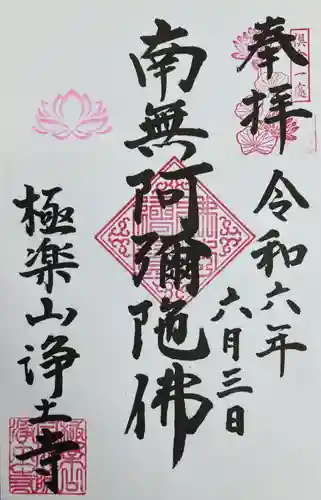 奉拝
俱會一處
令和六年
六月三日
南無阿彌陀佛
極楽山浄土寺